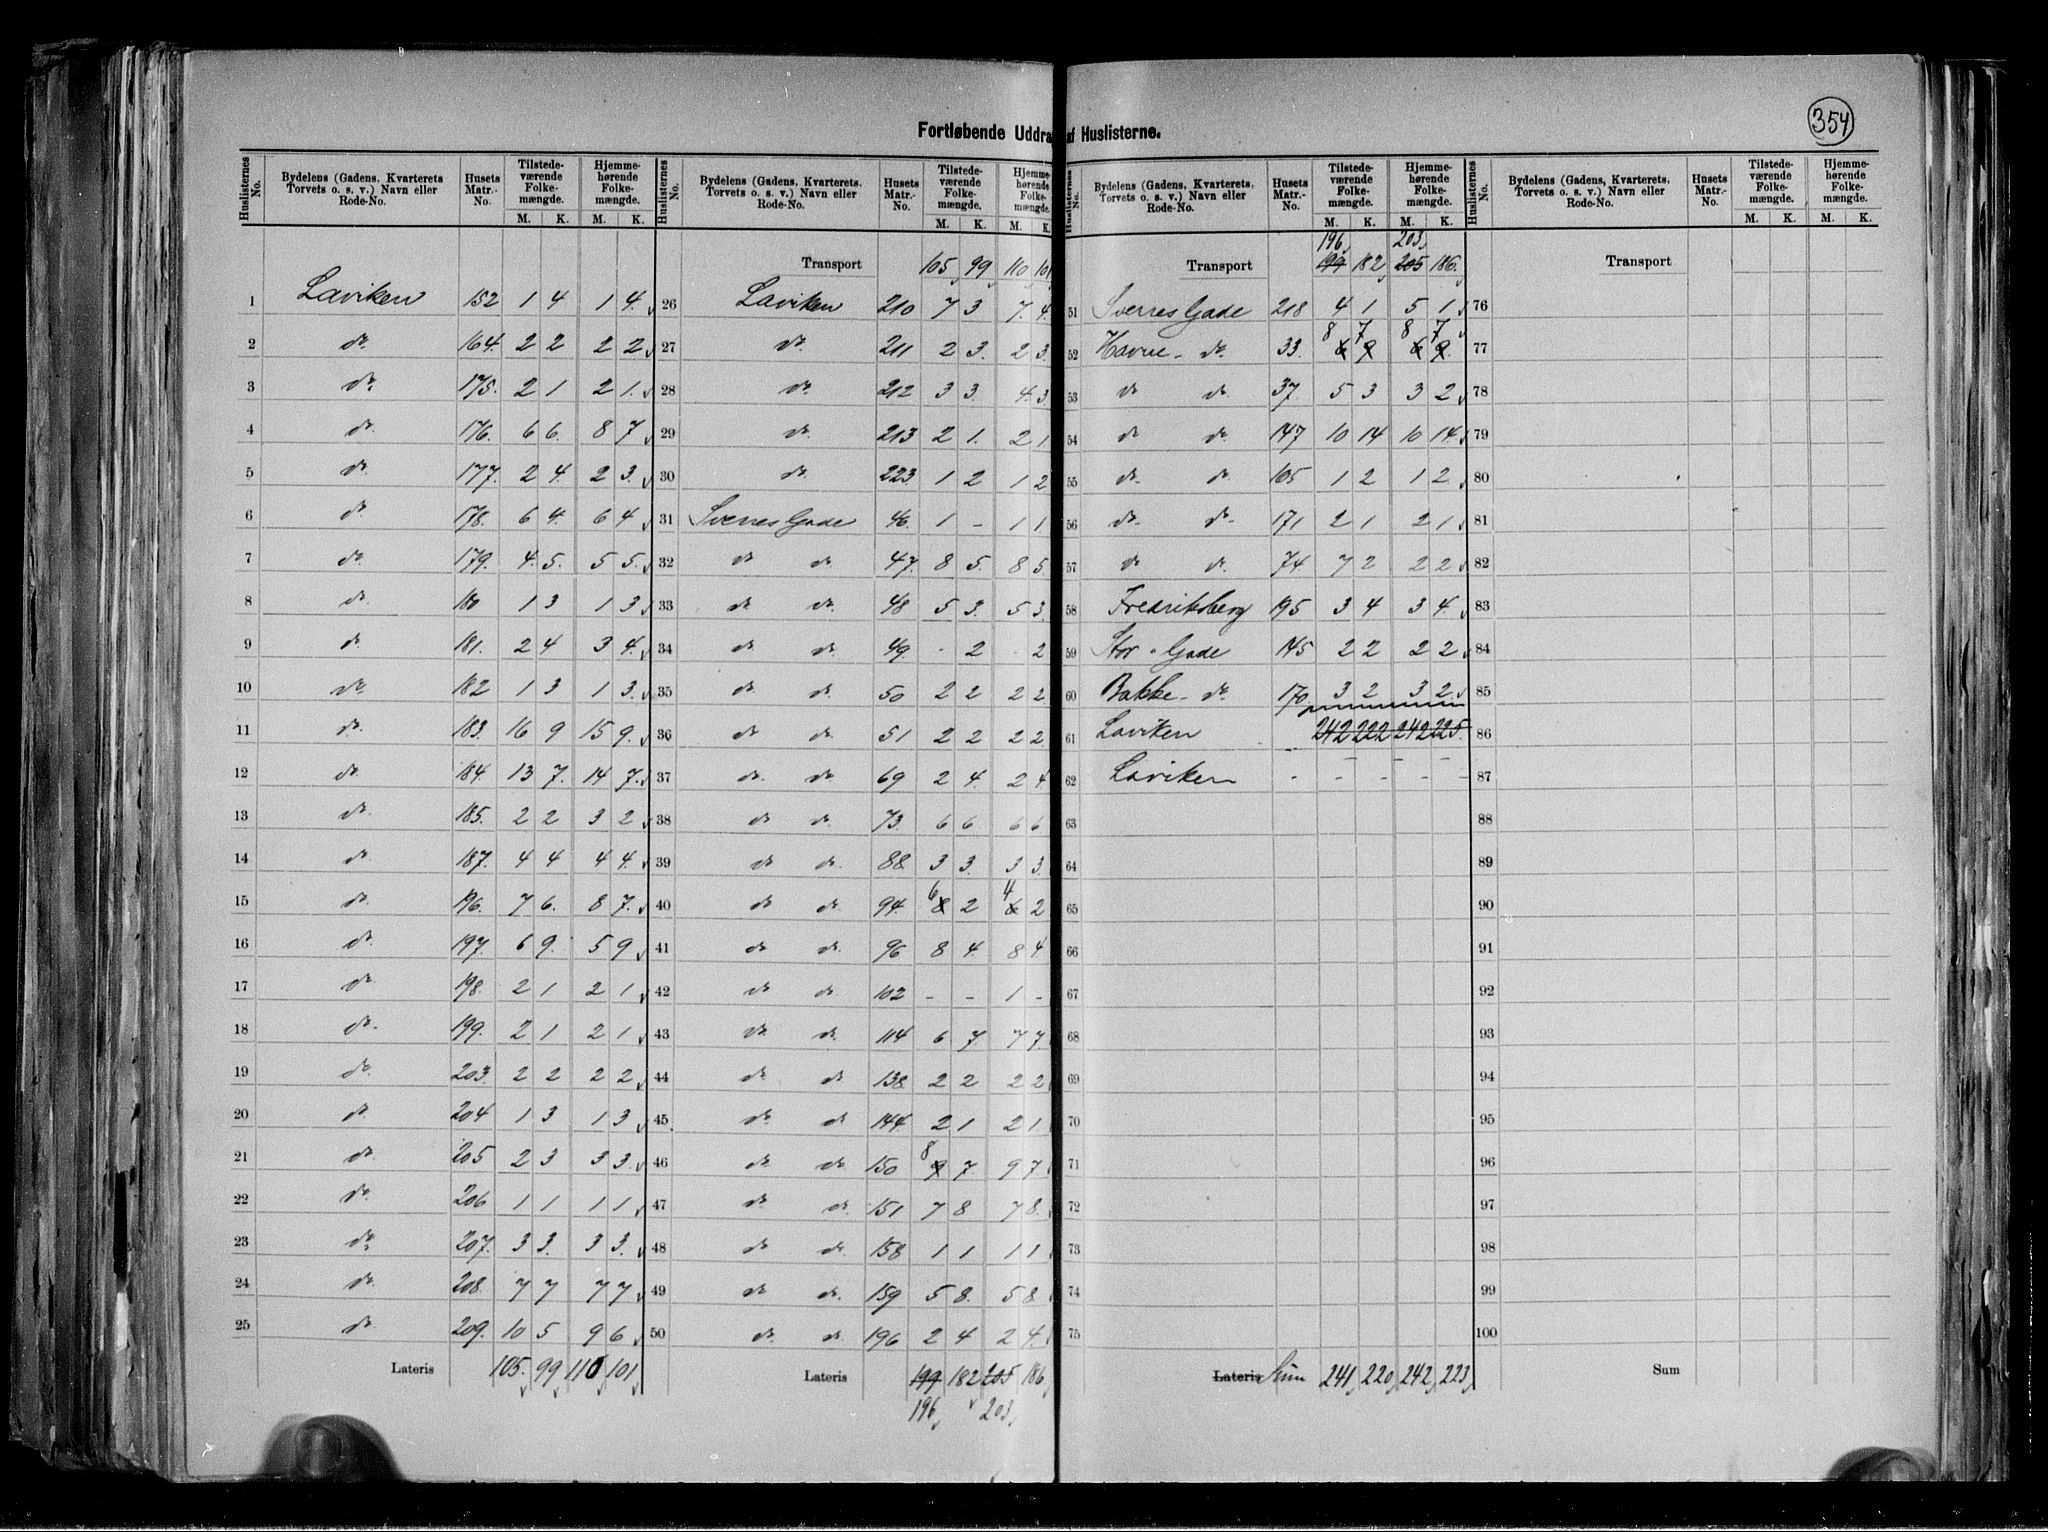 354
Fortløbende Uddra af Huslisterne.
Huslisternes No. Bydelens (Gadens, Kvarterets, Torvets o. s. v.) Navn eller Rode-No. Husets Matr.-No. Tilstedeværende Folkemængde. M. K. Hjemmehørende Folkemængde. M. K.
1 Laviken 152 1 4 1 4
2 do. 164. 2 2 2 2
3 do. 175. 2 1 2 1.
4 do. 176. 6 6. 8 7
5 do 177. 2 4. 2 3.
6 do 178. 6 4. 6 4
7 do. 179. 4. 5. 5 5.
8 do 180 1 3 1 3
9 do 181. 2 4 3 4.
10 do. 182 1 3 1 3.
11 do. 183. 16 9 15 9.
12 do. 184. 13 7. 14 7.
13 do. 185. 2 2 3 2
14 do 187. 4 4 4 4.
15 do. 196. 7 6. 8 7.
16 do. 197. 6 9. 5 9
17 do 198. 2 1 2 1
18 do. 199. 2 1 2 1
19 do. 203. 2 2 2 2
20 do 204 1 3 1 3
21 do. 205 2 3 3 3.
22 do. 206 1 1 1 1
23 do. 207. 3 3. 3 3.
24 do. 208. 7 7 7 7
25 do 209. 10 5 9 6
Lateris 105. 99 110 101
Huslisternes No. Bydelens (Gadens, Kvarterets, Torvets o. s. v.) Navn eller Rode-No. Husets Matr.-No. Tilstedeværende Folkemængde. M. K. Hjemmehørende Folkemængde. M. K.
Transport 105 99 110 101
26 Laviken 210 7 3 7. 4.
27 do. 211 2 3. 2 3
28 do. 212 3 3. 4. 3
29 do. 213 2 1. 2 1
30 do. 223. 1 2 1 2
31 Sverres Gade 46. 1 - 1 1
32 do do. 47. 8 5. 8 5.
33 do do. 48 5 3. 5 3.
34 do do. 49. - 2 - 2
35 do do. 50 2 2 2 2
36 do do. 51 2 2 2 2
37 do. do. 69 2 4. 2 4
38 do do. 73. 6 6 6 6
39 do do. 88. 3 3. 3 3.
40 do do. 94. 6 8 2 4 6 2
41 do do. 96 8 4. 8 4
42 do do 102 - - 1 -
43 do. do. 114 6 7. 7 7.
44 do do 138. 2 2 2 2
45 do. do. 144 2 1 2 1
46 do. do 150 8 9 7. 9 7
47 do do. 151 7 8 7 8.
48 do do. 158 1 1 1 1
49 do do. 159 5 8. 5 8.
50 do. do 196 2 4 2 4.
Lateris 199 182 205 186
196 203
Huslisternes No. Bydelens (Gadens, Kvarterets, Torvets o. s. v.) Navn eller Rode-No. Husets Matr.-No. Tilstedeværende Folkemængde. M. K. Hjemmehørende Folkemængde. M. K.
196 203
Transport 199 182 205 186
51 Sverres Gade 218 4 1 5 1
52 Havne - do. 33. 8 6 7 9 8 6 7 9.
53 do do. 37 5 3 3 2
54 do do 147 10 14 10 14.
55 do. do. 105 1 2 1 2
56 do- do- 171 2 1 2 1
57 do do. 74. 7 2 2 2
58 Fredriksberg 195 3 4 3 4.
59 Stor - Gade 145 2 2 2 2
60 Bakke - do. 170 3 2 3 2.
61 Laviken 242 222 242 225.
62 Laviken - - - -
63
64
65
66
67
68
69
70
71
72
73
74
75
Lateris Sum 241 220 242 223
Huslisternes No. Bydelens (Gadens, Kvarterets, Torvets o. s. v.) Navn eller Rode-No. Husets Matr.-No. Tilstedeværende Folkemængde. M. K. Hjemmehørende Folkemængde. M. K.
Transport
76
77
78
79
80
81
82
83
84
85
86
87
88
89
90
91
92
93
94
95
96
97
98
99
100
Sum